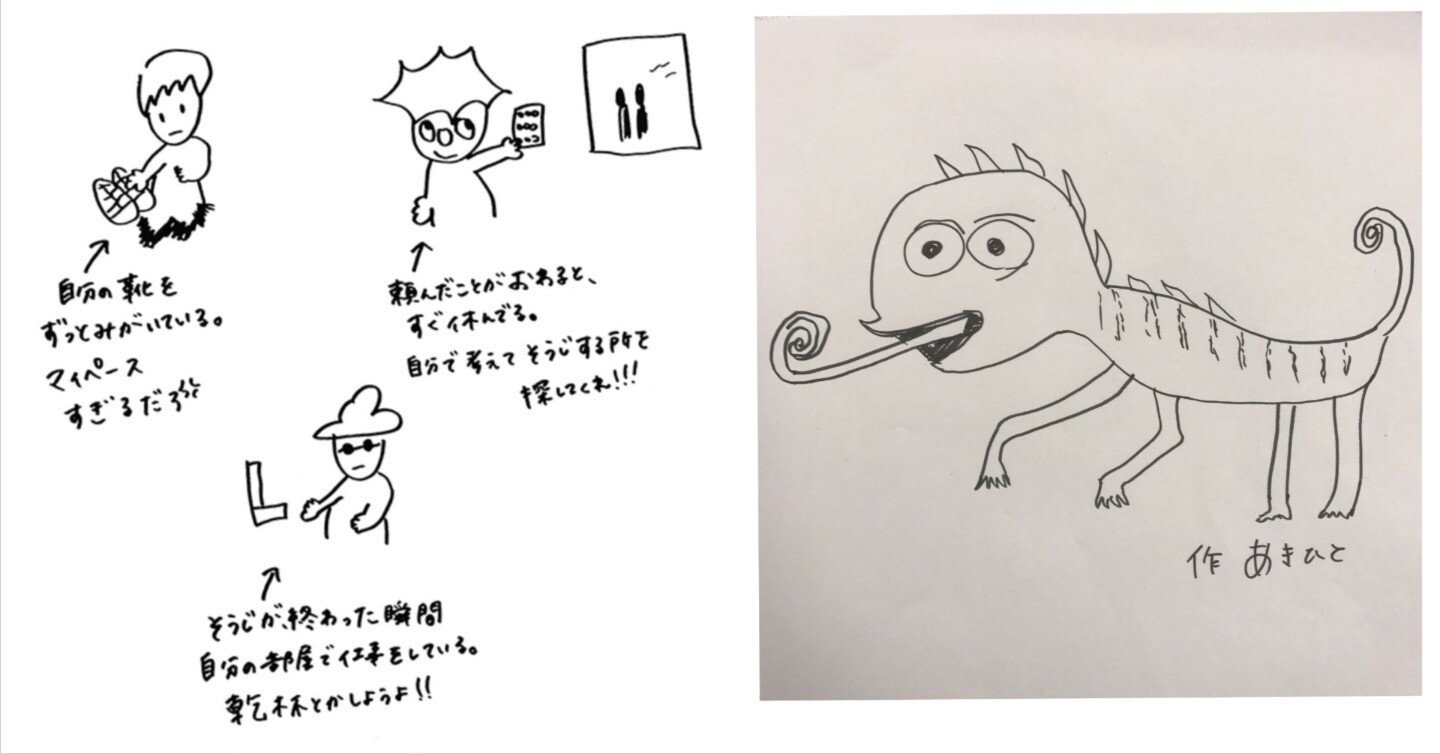 自分の靴を
ずっとみがいている。
マイペース
すぎるだろ
頼んだことがおわると、
すぐ休んでる。
自分で考えてそうじする所を
探してくれ!!!
そうじが、終わった瞬間
自分の部屋で仕事をしている。
乾杯とかしようよ!!
作 あきひと